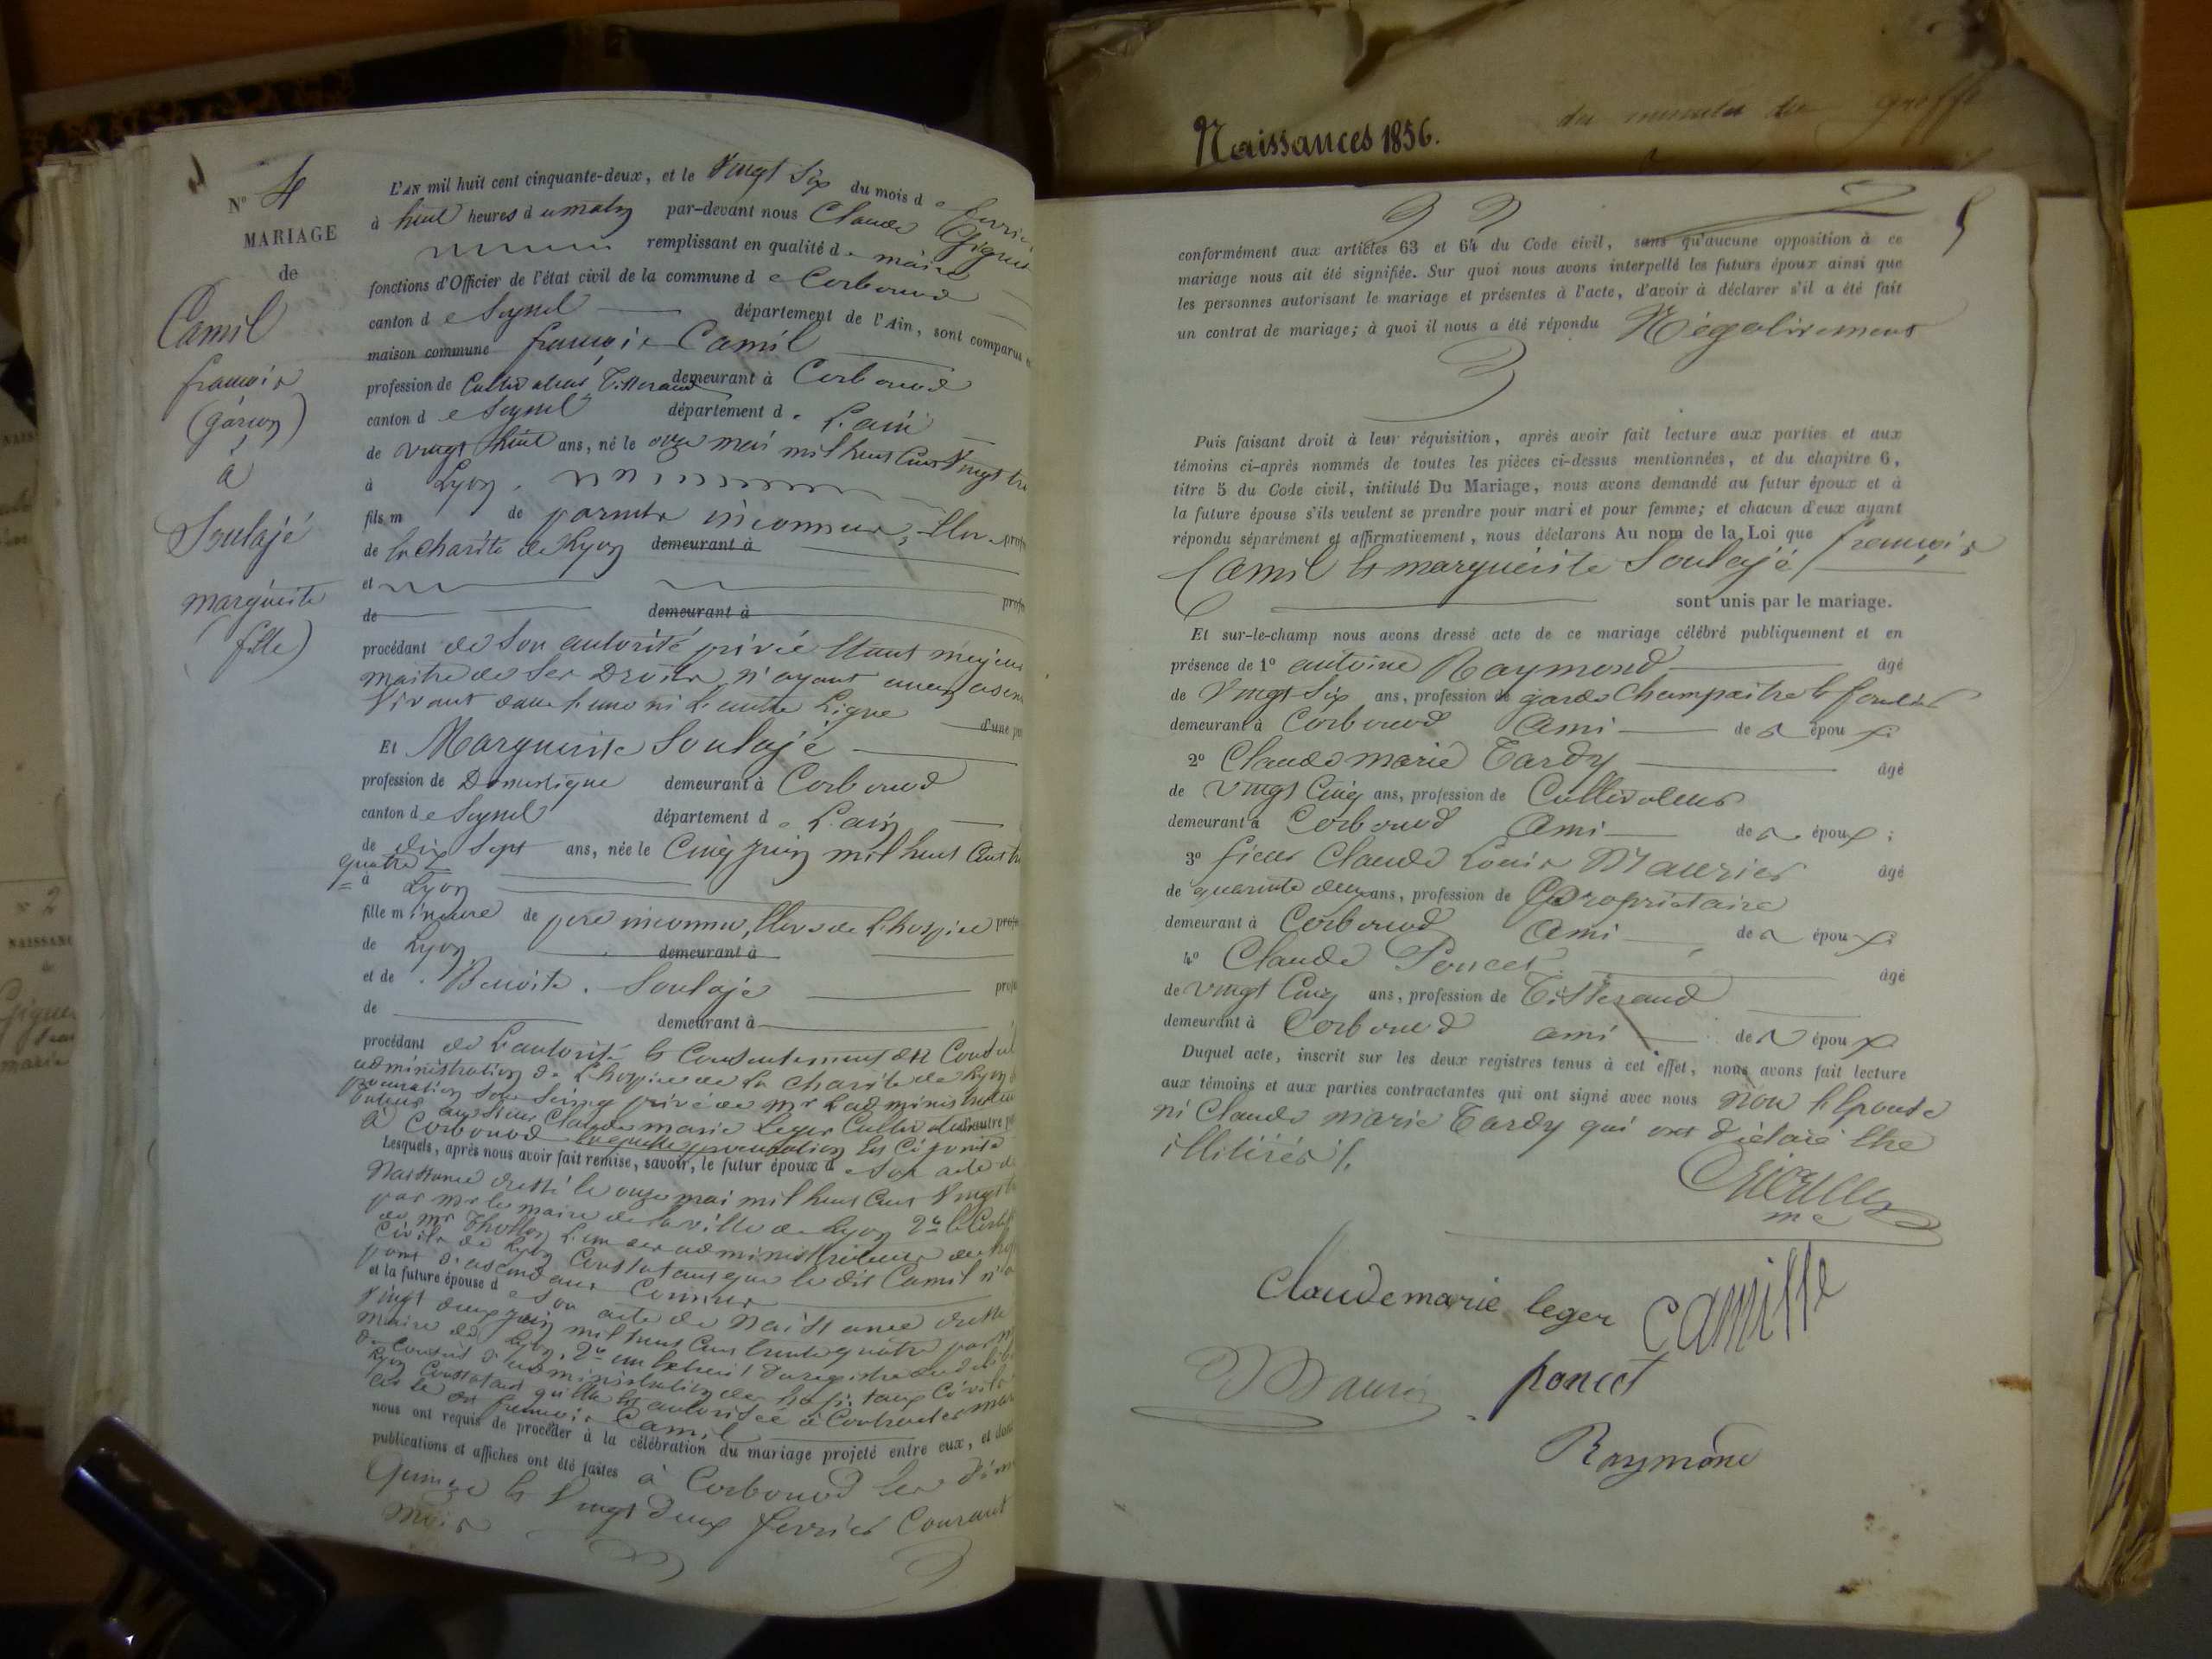 Naissances 1856.
du greffe
N° 4
MARIAGE
de
Camil
françois
(garçon)
à
Soulajé
marguerite
(fille)
L'AN mil huit cent cinquante-deux, et le Vingt Six du mois de fevrier
à huit heures du matin par-devant nous Claude
remplissant en qualité de maire
fonctions d'Officier de l'état civil de la commune de Corbonod
canton de Seyssel département de l'Ain, sont comparus
maison commune françois Camil
profession de Cultivateur, Tisserand demeurant à Corbonod
canton de Seyssel département de L'ain
de vingt huit ans, né le onze mai mil huit Cent Vingt
à Lyon
fils m de parents inconnus, Eleve prof
de la charité de Lyon demeurant à
et prof
de demeurant à
procédant de Son autorité privée Etant majeur
maitre de Ses Droits, n'ayant aucun
Vivant dans l'une ni L'autre Ligne d'une pa
Et Marguerite Soulajé
profession de Domestique demeurant à Corbonod
canton de Seyssel département de L'ain
de dix Sept ans, née le Cinq juin mil huit Cent
quatre
à Lyon
fille mineure de pere inconnu, Eleve de L'hospice prof
de Lyon demeurant à
et de Benoite Soulajé prof
de demeurant à
procédant de L'autorité et Consentement du Conseil
administration de L'hospice de la charité de Lyon
procuration Sous Seing privé de Mr L'administrateur
tuteur au Sieur Claude marie Leger Cultivateur d'autre p
à Corbonod laquelle procuration Est Ci jointe
Lesquels, après nous avoir fait remise, savoir, le futur époux de Son acte de
Naissance dressé le onze mai mil huit Cent Vingt
par Mr le maire de la ville de Lyon 2° le
de Mr L'un des administrateurs des
Civils de Lyon Constatant que le dit Camil n'a
point d'ascendant Connus
et la future épouse de Son acte de Naissance dressé
Vingt deux juin mil huit Cent trente quatre par
Maire de Lyon, 2° un Extrait du registre des
du Conseil d'administration des hopitaux Civils
Lyon Constatant qu'Elle Est autorisée à Contracter
le dit françois Camil
nous ont requis de procéder à la célébration du mariage projeté entre eux, et dont
publications et affiches ont été faites à Corbonod Les
Quinze Et Vingt deux fevrier Courant
Mois
5
conformément aux articles 63 et 64 du Code civil, sans qu'aucune opposition à ce
mariage nous ait été signifiée. Sur quoi nous avons interpellé les futurs époux ainsi que
les personnes autorisant le mariage et présentes à l'acte, d'avoir à déclarer s'il a été fait
un contrat de mariage; à quoi il nous a été répondu Négativement
Puis faisant droit à leur réquisition, après avoir fait lecture aux parties et aux
témoins ci-après nommés de toutes les pièces ci-dessus mentionnées, et du chapitre 6,
titre 5 du Code civil, intitulé Du Mariage, nous avons demandé au futur époux et à
la future épouse s'ils veulent se prendre pour mari et pour femme; et chacun d'eux ayant
répondu séparément et affirmativement, nous déclarons Au nom de la Loi que françois
Camil Et marguérite Soulajé
sont unis par le mariage.
Et sur-le-champ nous avons dressé acte de ce mariage célébré publiquement et en
présence de 1° antoine Raymond âgé
de Vingt Six ans, profession de garde Champaitre Et
demeurant à Corbonod Ami des époux;
2° Claude marie Tardy âgé
de Vingt Cinq ans, profession de Cultivateur
demeurant à Corbonod Ami des époux;
3° Sieur Claude Louis Maurier âgé
de quarante deux ans, profession de Propriétaire
demeurant à Corbonod Ami des époux;
4° Claude Poncet âgé
de vingt Cinq ans, profession de Tisserand
demeurant à Corbonod ami des époux
Duquel acte, inscrit sur les deux registres tenus à cet effet, nous avons fait lecture
aux témoins et aux parties contractantes qui ont signé avec nous Non L'Epouse
ni Claude marie Tardy qui ont déclaré Etre
illitérés /.
Claudemarie leger camille
poncet
Raymond